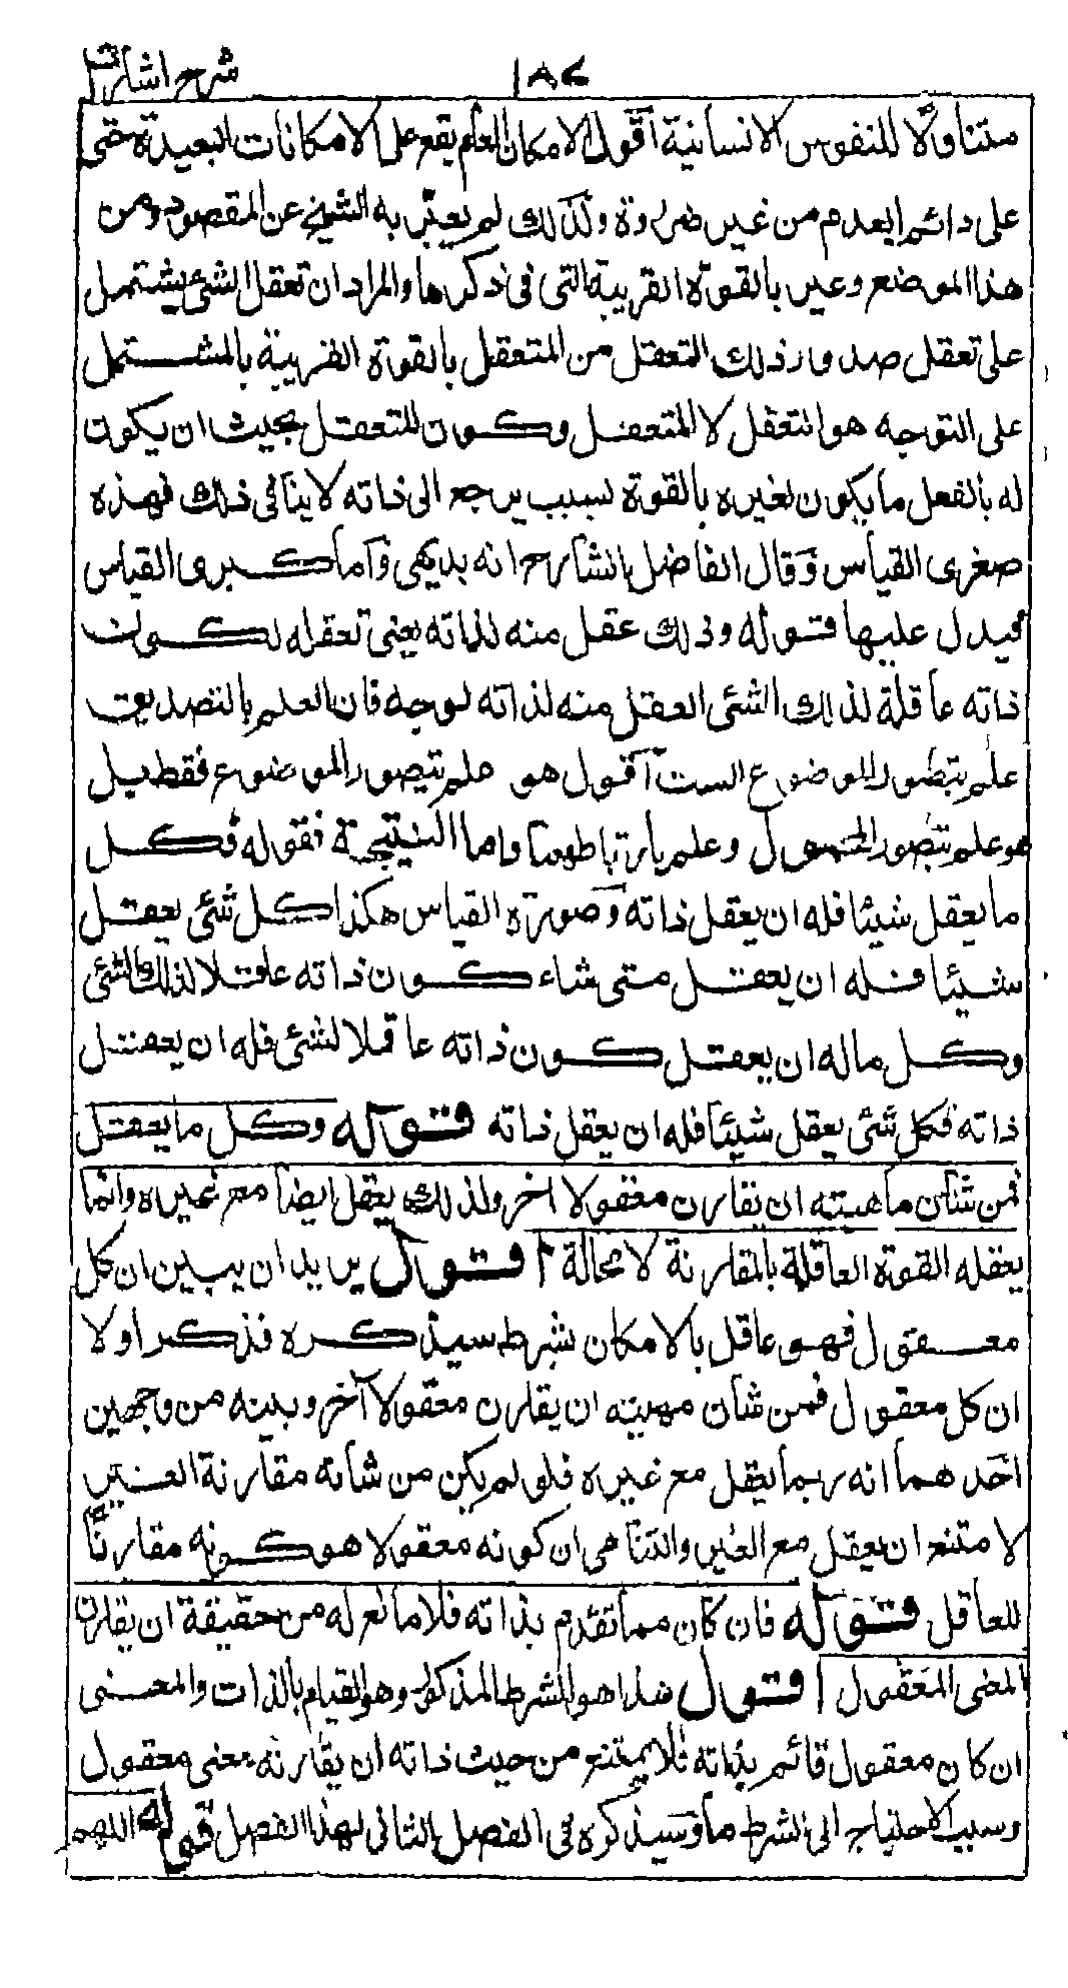 شرح اشارات ١٨٤
متناولًا للنفوس الانسانية اقول الامكان العام يقع على الامكانات البعيدة حتى
على دائم العدم من غير ضرورة ولذلك لم يعبّر به الشيخ عن المقصود ومن
هذا الموضع وعبر بالقوة القريبة التى فى ذكرها والمراد ان تعقل الشئ يشتمل
على تعقل صدور ذلك التعقل من المتعقل بالقوة القريبة بالمشتمل
على التوجه هو التعقل لا المتعقل وكون المتعقل بحيث ان يكون
له بالفعل ما يكون لغيره بالقوة لسبب يرجع الى ذاته لا ينافى ذلك فهذه
صغرى القياس وَقال الفاضل الشارح انه بديهى وَاما كبرى القياس
فيدل عليها قوله وذلك عقل منه لذاته يعنى تعقله لكون
ذاته عاقلة لذلك الشئ العقل منه لذاته لوجه فان العلم بالتصديق
علم بتصور الموضوع الست اقول هو علم بتصور الموضوع فقط بل
هو علم بتصور المحمول وعلم بارتباطهما واما النتيجة فقوله فكل
ما يعقل شيئا فله ان يعقل ذاته وَصورة القياس هكذا كل شئ يعقل
شيئا فله ان يعقل متى شاء كون ذاته عاقلا لذلك الشئ
وكل ماله ان يعقل كون ذاته عاقلا لشئ فله ان يعقل
ذاته فكل شئ يعقل شيئا فله ان يعقل ذاته قوله وكل ما يعقل
فمن شأن ماهيته ان يقارن معقولا اخر ولذلك يعقل ايضا مع غيره وانما
يعقله القوة العاقلة بالمقارنة لا محالة اقول يريد ان يبين ان كل
معقول فهو عاقل بالامكان بشرط سيذكره فذكر اولا
ان كل معقول فمن شأن مهيته ان يقارن معقولا آخر وبينه من وجهين
احدهما انه ربما يعقل مع غيره فلو لم يكن من شانه مقارنة الغير
لامتنع ان يعقل مع الغير والثانى ان كونه معقولا هو كونه مقارنًا
للعاقل قوله فان كان مما تقدم بذاته فلا مانع له من حقيقة ان يقارن
المعنى المعقول اقول هذا هو الشرط المذكور وهو القيام بالذات والمعنى
ان كان معقول قائم بذاته فلا يمتنع من حيث ذاته ان يقارنه معنى معقول
وسبب الاحتياج الى الشرط ما وَسيذكره فى الفصل الثانى لهذا الفصل قوله اللهم